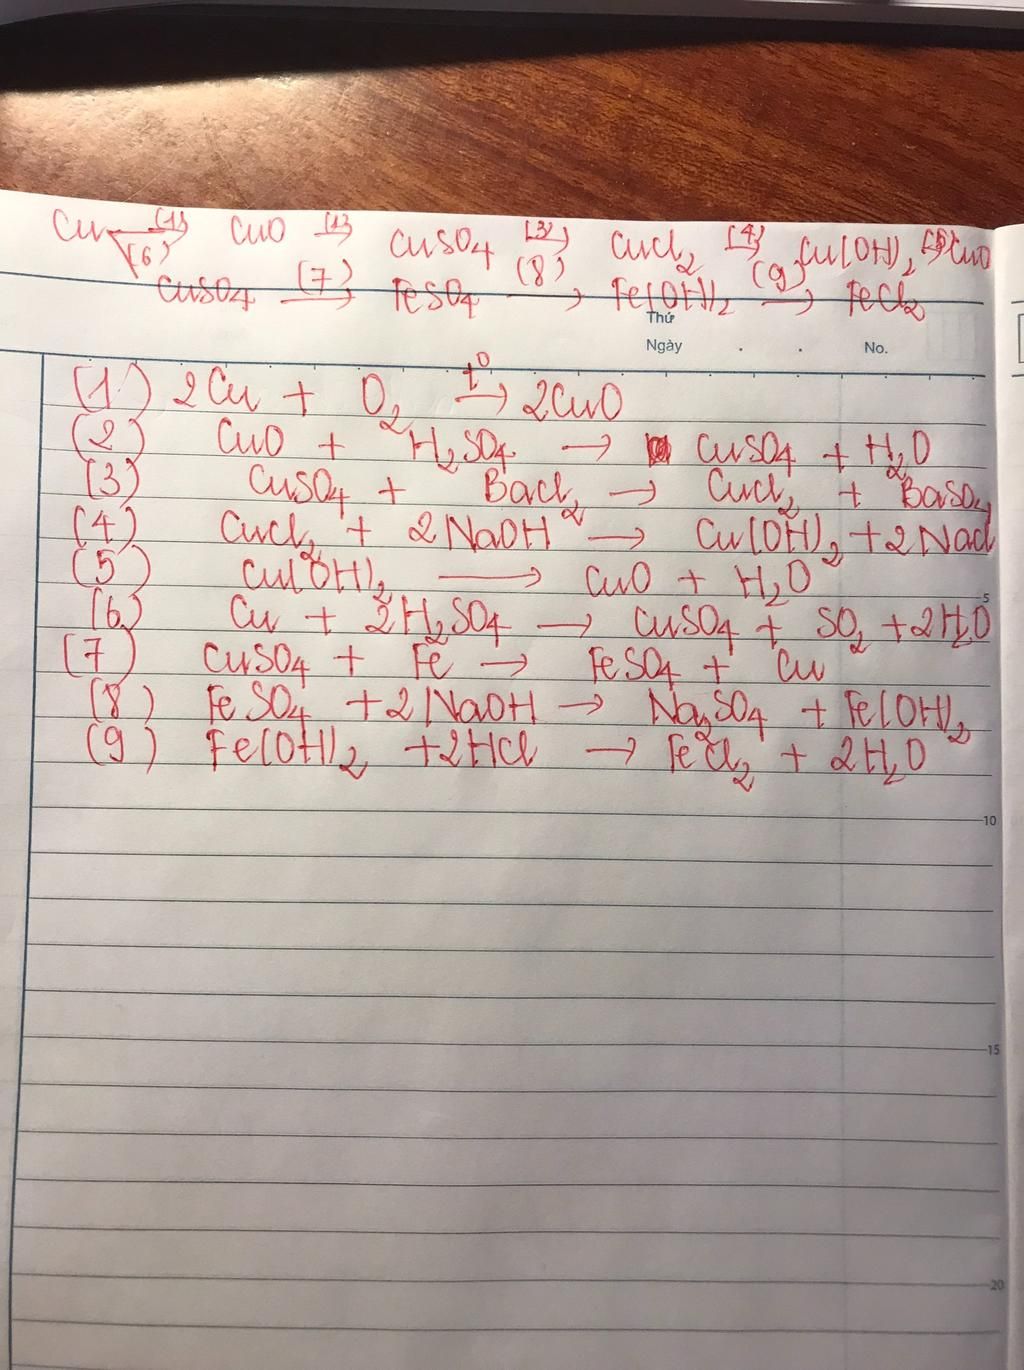 Cu (1) CuO (2) CuSO4 (3) CuCl2 (4) Cu(OH)2 (5) CuO
(6) CuSO4 (7) → FeSO4 (8) → Fe(OH)2 (9) → FeCl2
Thứ
Ngày . . No.
(1) 2Cu + O2 t° → 2CuO
(2) CuO + H2SO4 → CuSO4 + H2O
(3) CuSO4 + BaCl2 → CuCl2 + BaSO4
(4) CuCl2 + 2NaOH → Cu(OH)2 + 2NaCl
(5) Cu(OH)2 → CuO + H2O
5
(6) Cu + 2H2SO4 → CuSO4 + SO2 + 2H2O
(7) CuSO4 + Fe → FeSO4 + Cu
(8) FeSO4 + 2NaOH → Na2SO4 + Fe(OH)2
(9) Fe(OH)2 + 2HCl → FeCl2 + 2H2O
10
15
20